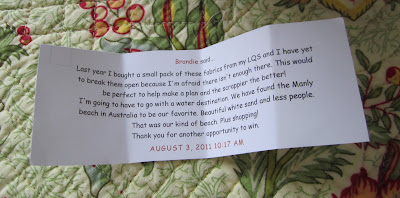 Brandie said...
Last year I bought a small pack of these fabrics from my LQS and I have yet
to break them open because I'm afraid there isn't enough there. This would
be perfect to help make a plan and the scrappier the better!
I'm going to have to go with a water destination. We have found the Manly
beach in Australia to be our favorite. Beautiful white sand and less people.
That was our kind of beach. Plus shopping!
Thank you for another opportunity to win.
AUGUST 3, 2011 10:17 AM